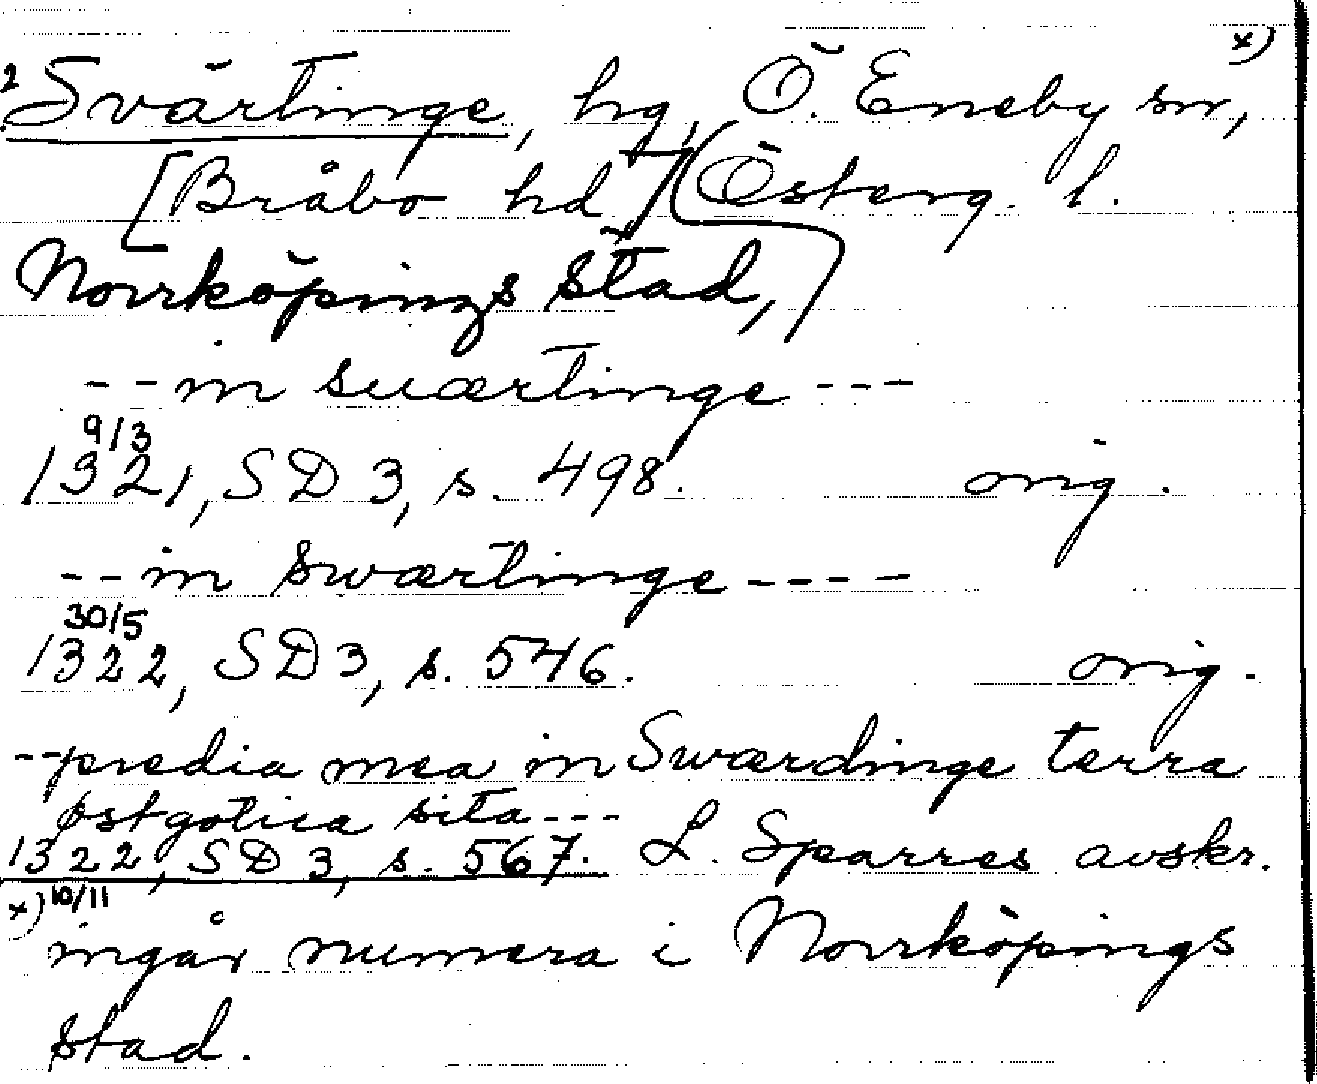 x)
2 Svärtinge, hg, Ö. Eneby sn,
[Bråbo hd] (Österg. l.
Norrköpings stad,)
-- in suærtinge ---
9/3
1321, SD 3, s. 498. orig.
-- in swærtinge ----
30/5
1322, SD 3, s. 546. orig.
-- predia mea in Swærdinge terra
østgotica sita ---
1322, SD 3, s. 567. L. Sparres avskr.
10/11
x) ingår numera i Norrköpings
stad.